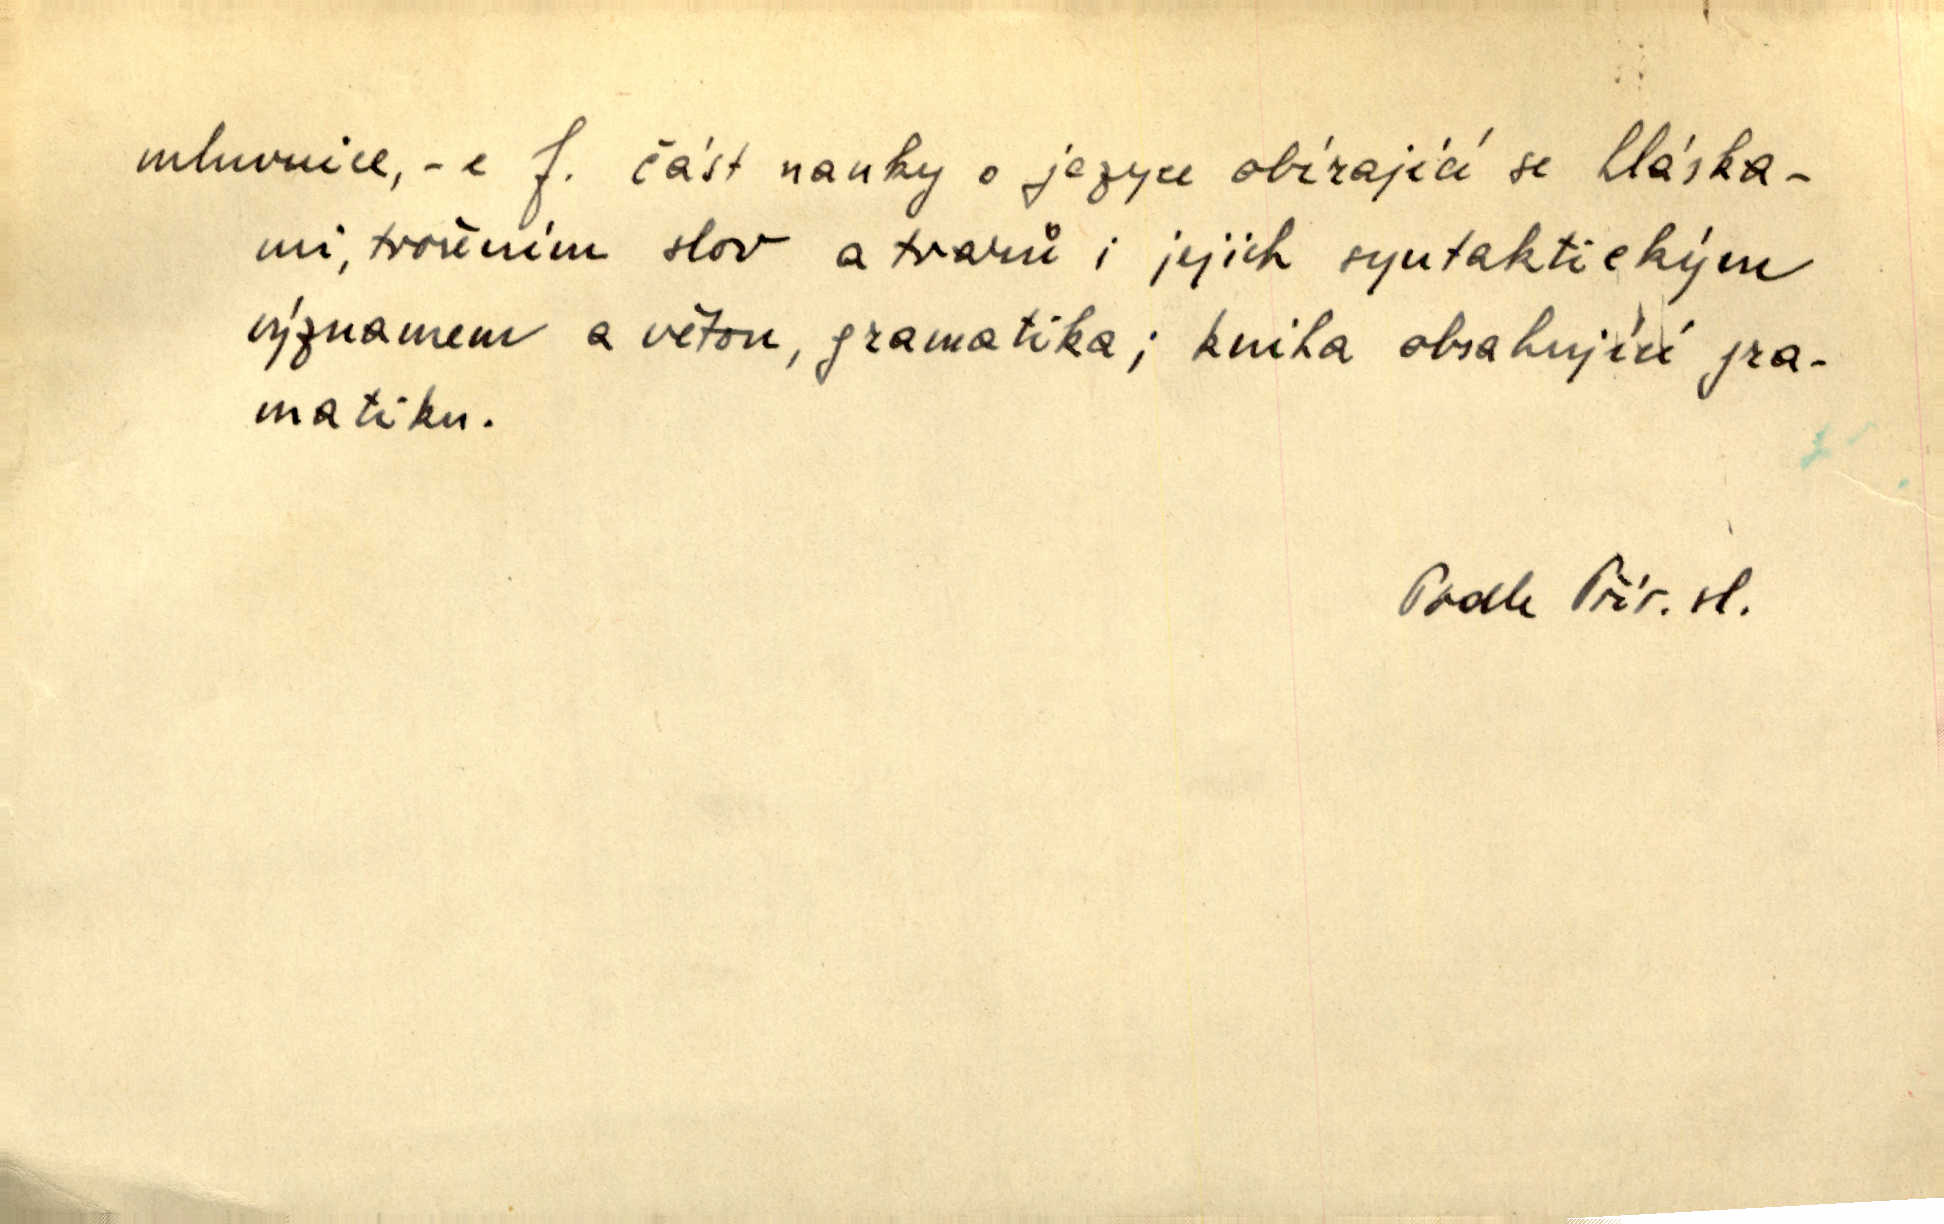 mluvnice, -e f. část nauky o jazyce obírající se hláska-
mi, tvořením slov a tvarů i jejich syntaktickým
významem a větou, gramatika; kniha obsahující gra-
matiku.
Podle Přír. sl.